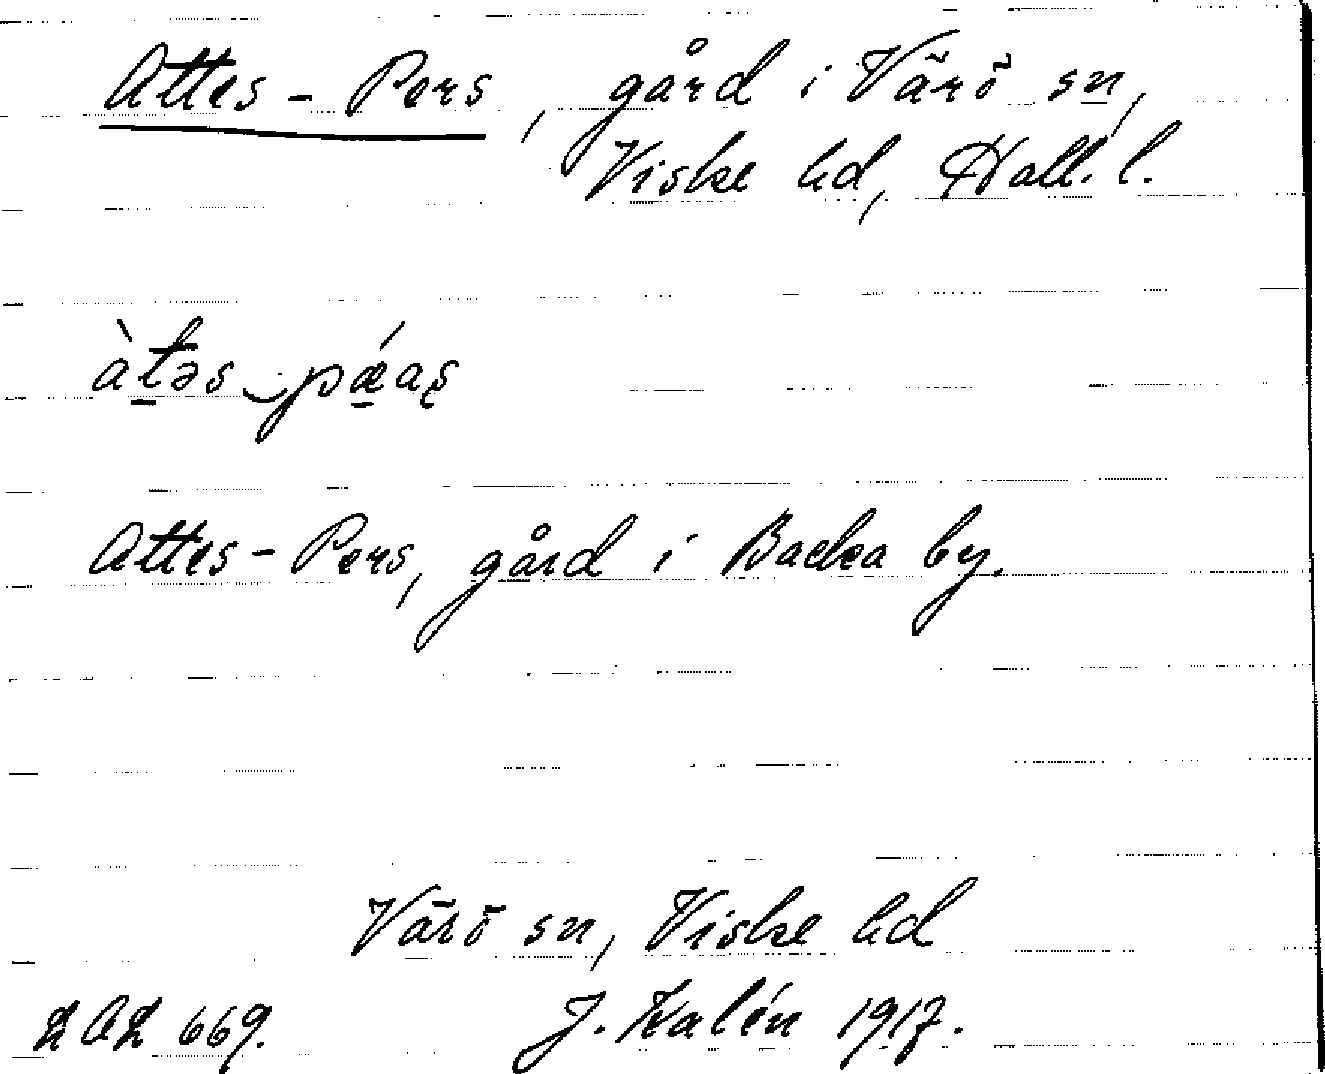 Attes-Pers, gård i Värö sn,
Viske hd, Hall. l.
àt̠əs‿pǽ̠aş
Attes-Pers, gård i Backa by.
Värö sn, Viske hd
LAL 669. J. Kalén 1917.